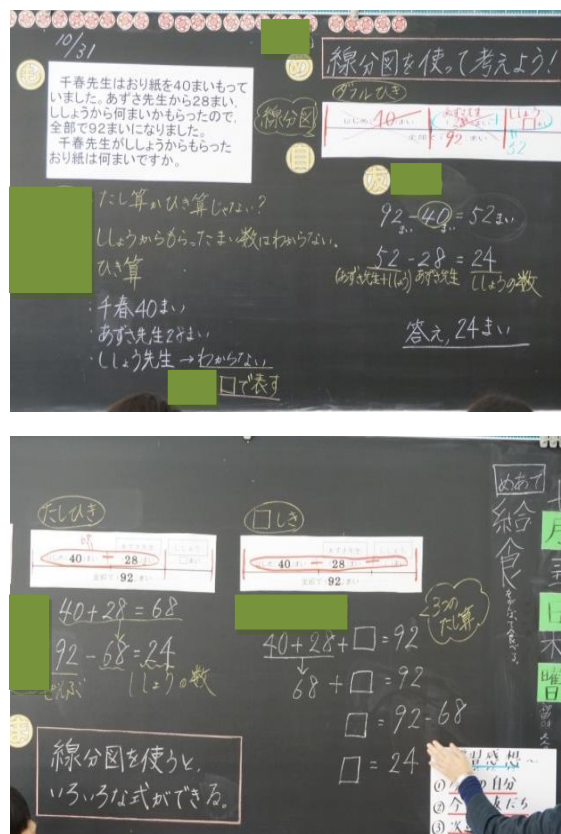 10/31
千春先生はおり紙を40まいもって
いました。あずさ先生から28まい,
ししょうから何まいかもらったので,
全部で92まいになりました。
千春先生がししょうからもらった
おり紙は何まいですか。
たし算かひき算じゃない?
ししょうからもらったまい数はわからない。
ひき算
・千春40まい
・あずさ先生28まい
・ししょう先生→わからない
□で表す
線分図を使って考えよう!
ダブルひき
線分図
40
92
52
自
友
92-40=52まい
まい まい
52-28=24
(あずさ先生+ししょう) あずさ先生 ししょうの数
答え,24まい
たしひき
40 28
92
40+28=68
92-68=24
ぜんぶ ししょうの数
線分図を使うと,
いろいろな式ができる。
□しき
40 28
92
3つの
たし算
40+28+□=92
68+□=92
□=92-68
□=24
めあて
給食
月
日
曜日